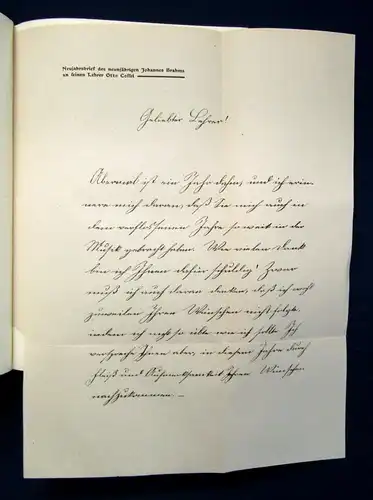 Neujahrsbrief des neunjährigen Johannes Brahms
an seinen Lehrer Otto Cossel
Geliebter Lehrer!
Abermal ist ein Jahr dahin, und ich erin-
nere mich daran, daß Sie mich auch in
dem verflossenen Jahre so weit in der
Musik gebracht haben. Wie vielen Dank
bin ich Ihnen dafür schuldig! Zwar
muß ich auch daran denken, daß ich wohl
zuweilen Ihren Wünschen nicht folgte,
indem ich nicht so übte wie ich sollte. Ich
verspreche Ihnen aber, in diesem Jahre durch
Fleiß und Aufmerksamkeit Ihren Wünschen
nachzukommen. —